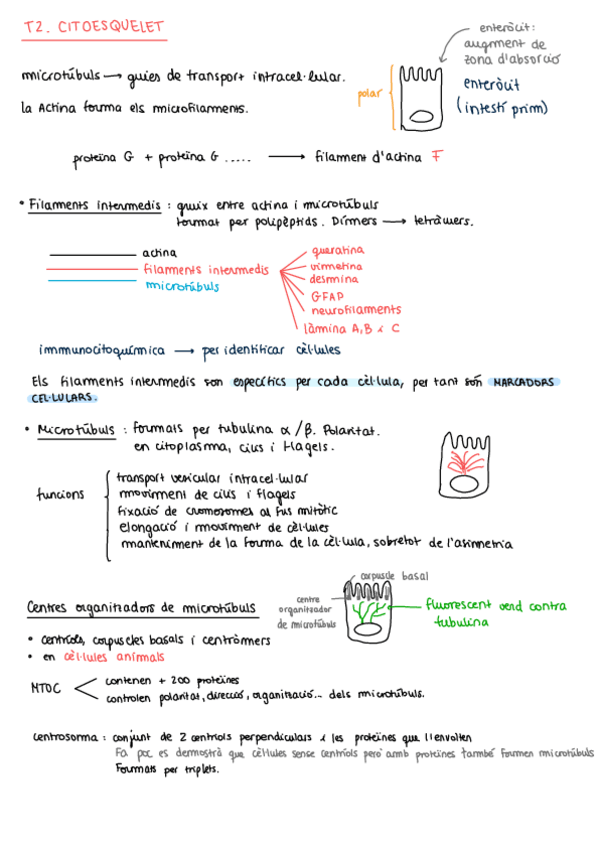 T2. CITOESQUELET
enteròcit:
augment de
zona d'absorció
microtúbuls → guies de transport intracel·lular.
polar
enteròcit
(intestí prim)
la Actina forma els microfilaments.
proteïna G + proteïna G ..... → filament d'actina F
• Filaments intermedis : gruix entre actina i microtúbuls
format per polipèptids. Dímers → tetràmers.
actina
filaments intermedis
microtúbuls
queratina
vimetina
desmina
GFAP
neurofilaments
làmina A, B i C
immunocitoquímica → per identificar cèl·lules
Els filaments intermedis són específics per cada cèl·lula, per tant són MARCADORS
CEL·LULARS.
• Microtúbuls : formats per tubulina α/β. Polaritat.
en citoplasma, cilis i flagels.
funcions
transport vesicular intracel·lular
moviment de cilis i flagels
fixació de cromosomes al fus mitòtic
elongació i moviment de cèl·lules
manteniment de la forma de la cèl·lula, sobretot de l'asimetria
corpuscle basal
centre
organitzador
de microtúbuls
fluorescent verd contra
tubulina
Centres organitzadors de microtúbuls
• centríols, corpuscles basals i centròmers
• en cèl·lules animals
MTOC
contenen + 200 proteïnes
controlen polaritat, direcció, organització... dels microtúbuls.
centrosoma : conjunt de 2 centríols perpendiculars i les proteïnes que l'envolten
Fa poc es demostrà que cèl·lules sense centríols però amb proteïnes també formen microtúbuls
Formats per triplets.